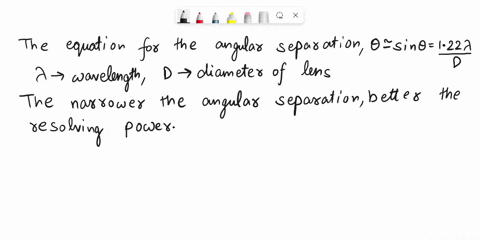 The equation for the angular separation, θ ≃ sinθ = 1.22λ/D
λ → wavelength, D → diameter of lens
The narrower the angular separation, better the
resolving power.